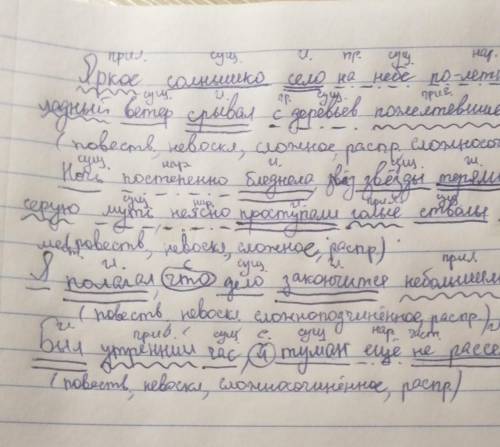 прил. сущ. г. пр. сущ. нар.
Яркое солнышко село на небе по-летн
сущ. г. пр. сущ. прич.
ладный ветер срывал с деревьев пожелтевшие
(повеств, невоскл, сложное, распр. сложносо
сущ. нар. г. сущ. г.
Ночь постепенно бледнела, звёзды теряли
сущ. нар. г. прил. сущ.
серую муть неясно проступали голые стволы
повеств, невоскл, сложное, распр)
г. с. сущ. г. прил
Я полагал, что дело закончится небольшим
(повеств, невоскл, сложноподчинённое, распр.)
г. прил. сущ с. сущ нар. част.
Был утренний час, и туман ещё не рассе
(повеств, невоскл, сложносочинённое, распр)